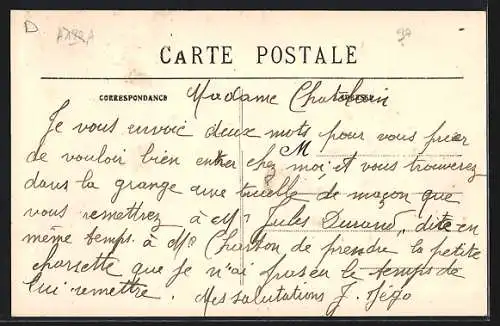 D
CARTE POSTALE
CORRESPONDANCE
Madame Chatelain
Je vous envoie deux mots pour vous prier
M
de vouloir bien entrer chez moi et vous trouverez
dans la grange une truelle de maçon que
vous remettrez à Mr Jules Durand, dite en
même temps à Mr Charton de prendre la petite
charrette que je n'ai pas en le temps de
lui remettre. Mes salutations J.